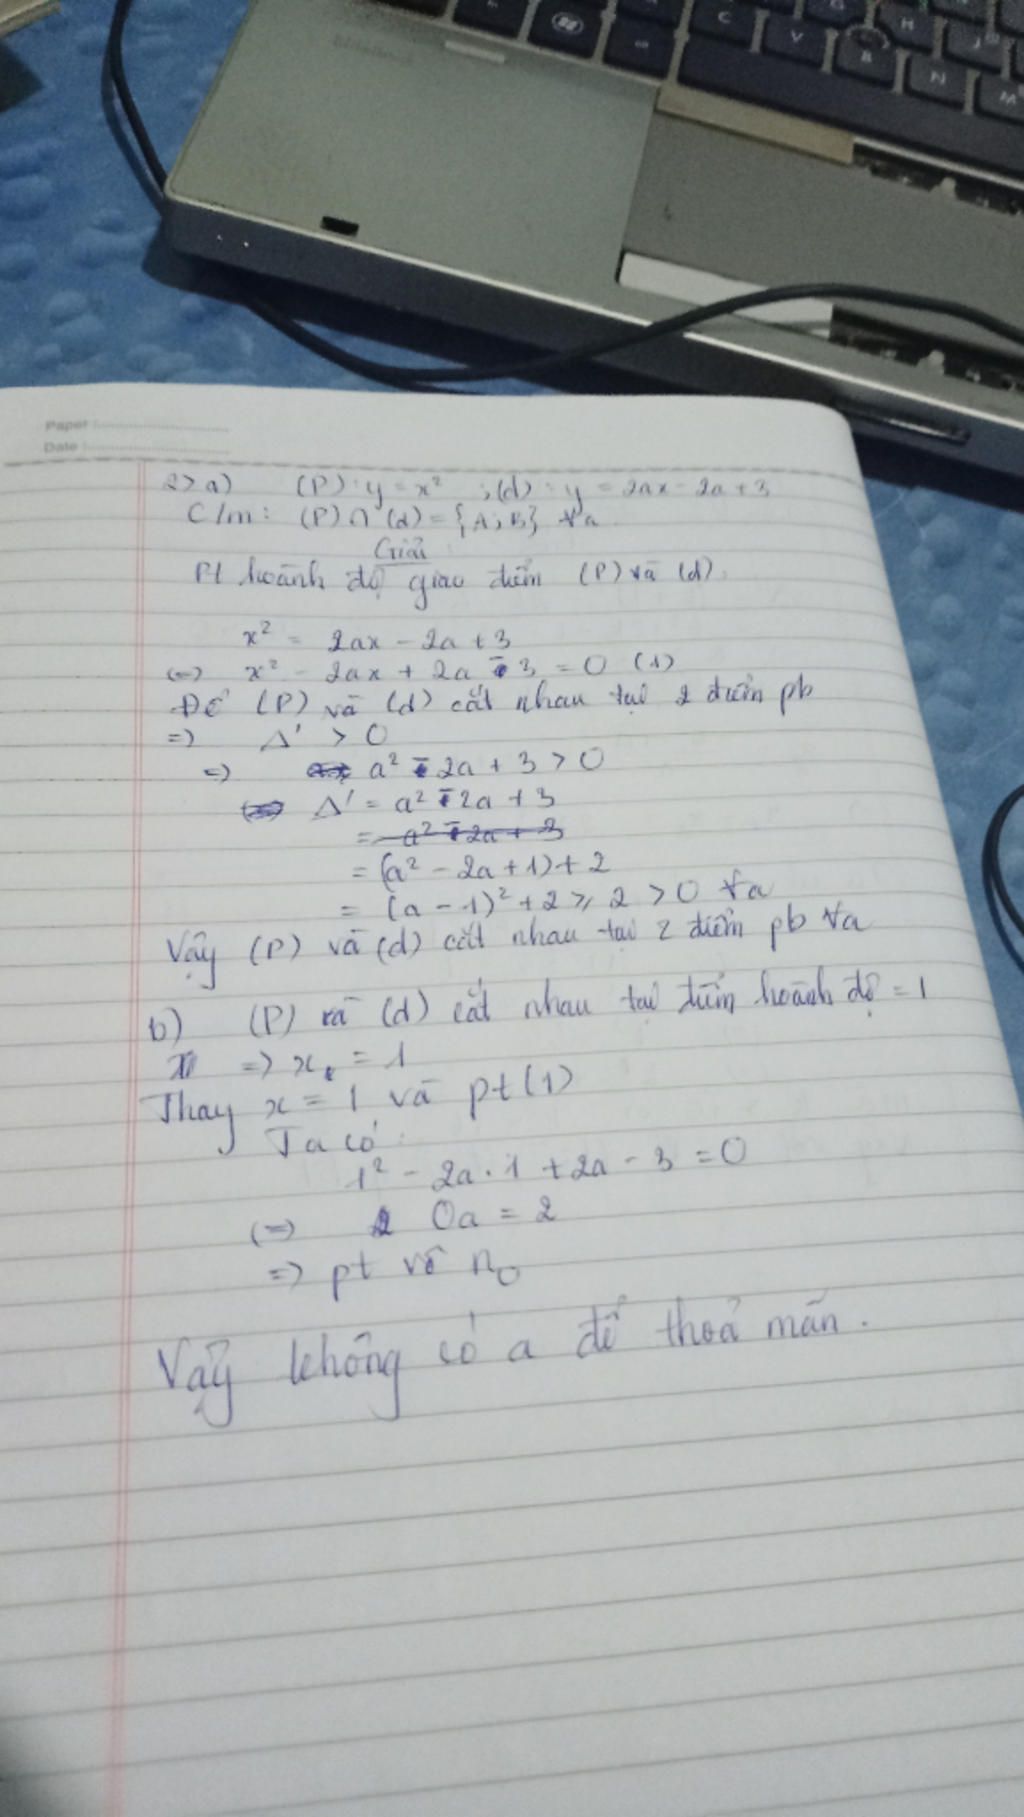 Paper :
Date :
2> a) (P) : y = x² ; (d) : y = 2ax - 2a + 3
C/m : (P) ∩ (d) = {A ; B} ∀a
Giải
Pt hoành độ giao điểm (P) và (d) :
x² = 2ax - 2a + 3
(=) x² - 2ax + 2a - 3 = 0 (1)
Để (P) và (d) cắt nhau tại 2 điểm pb
=) Δ' > 0
=) a² - 2a + 3 > 0
Δ' = a² - 2a + 3
= a² - 2a + 3
= (a² - 2a + 1) + 2
= (a - 1)² + 2 ⩾ 2 > 0 ∀a
Vậy (P) và (d) cắt nhau tại 2 điểm pb ∀a
b) (P) và (d) cắt nhau tại điểm hoành độ = 1
=) x = 1
Thay x = 1 và pt (1)
Ta có :
1² - 2a . 1 + 2a - 3 = 0
(=) 0a = 2
=) pt vô n₀
Vậy không có a để thoả mãn .
C V B N M H J